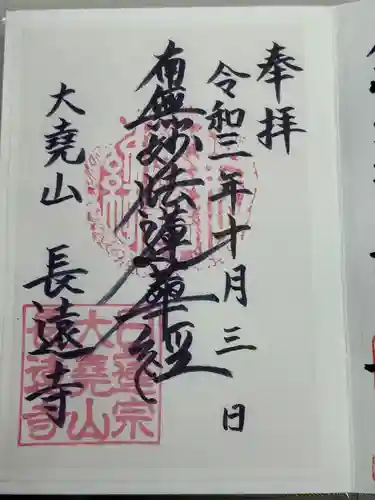 奉拝
令和三年十月三日
南無妙法蓮華経
大堯山
長遠寺
日蓮宗
大堯山
長遠寺